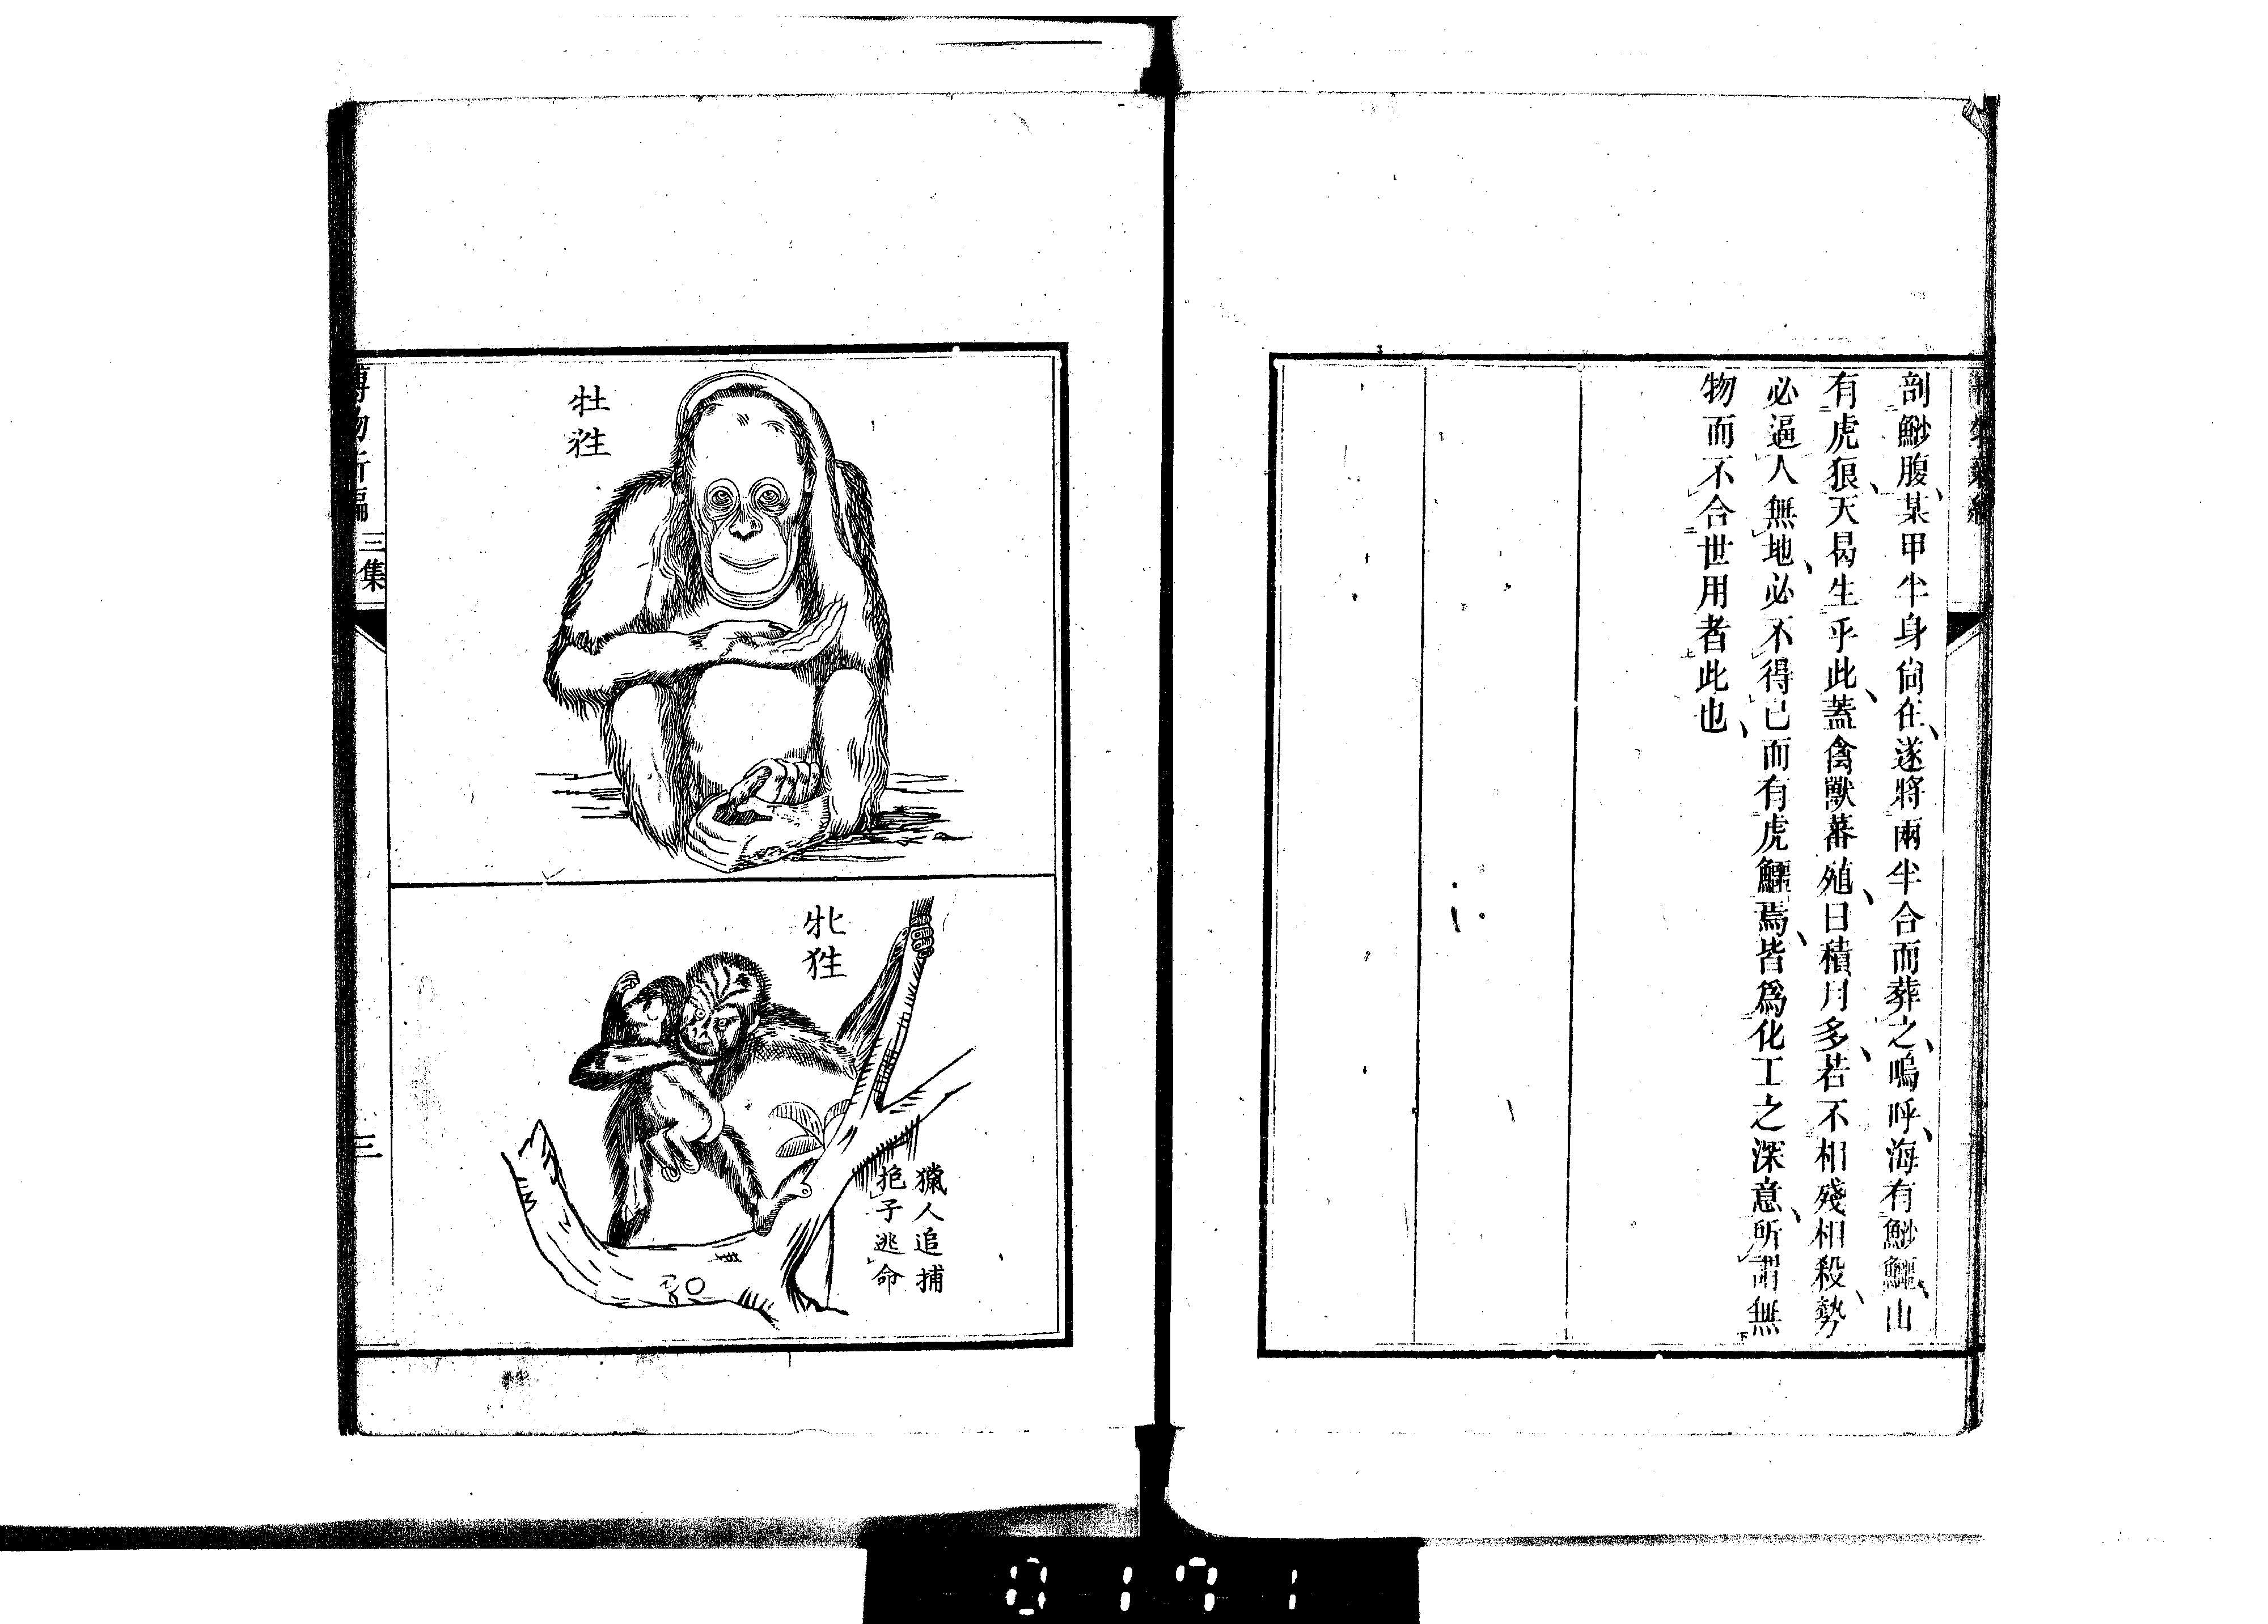 剖鯋腹、某甲半身尙在、遂將兩半合而葬之、嗚呼、海有鯋鱷、山
有虎狼、天曷生乎此、蓋禽獸蕃殖、日積月多、若不相殘相殺、勢
必逼人無地、必不得已而有虎鱷焉、皆爲化工之深意、所謂無
物而不合世用者此也、
牡狌
牝狌
獵人追捕
抱子逃命
博物新編
三集
三
0171